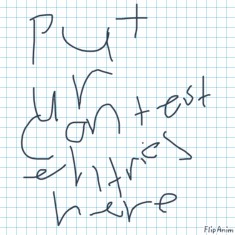 Put
ur
contest
entries
here
FlipAnim